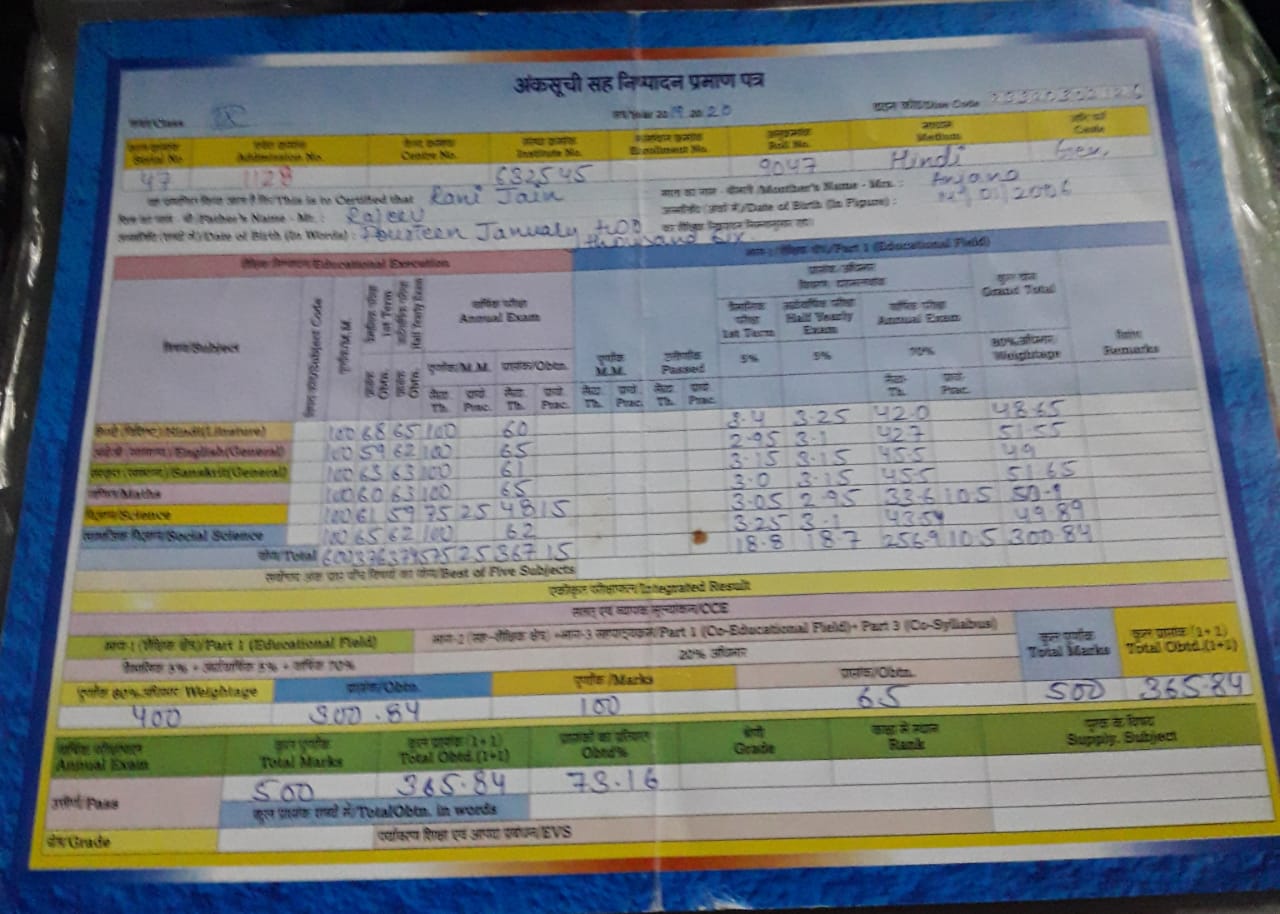 अंकसूची सह निष्पादन प्रमाण पत्र
कक्षा/Class IX सत्र/Year 2019 2020 डाइस कोड/Dise Code
Serial No. Admission No. Centre No. Institute No. Enrollment No. Roll No. माध्यम Medium Code
47 1128 632545 9047 Hindi Gen.
This is to Certified that Rani Jain Mother's Name - Mrs. : Anjana
Father's Name - Mr. : Rajeev Date of Birth (In Figure) : 14/01/2006
Date of Birth (In Words) : Fourteen January two thousand six
शैक्षिक निष्पादन/Educational Execution भाग-1 (शैक्षिक क्षेत्र)/Part 1 (Educational Field)
विषय/Subject Subject Code पूर्णांक/M.M. 1st Term Half Yearly Exam वार्षिक परीक्षा Annual Exam पूर्णांक M.M. उत्तीर्णांक Passed 1st Term Half Yearly Exam वार्षिक परीक्षा Annual Exam कुल योग Grand Total Remarks
प्राप्तांक Obtn. प्राप्तांक Obtn. पूर्णांक/M.M. प्राप्तांक/Obtn. 5% 5% 70% 80% अधिभार Weightage
Th. Prac. Th. Prac. Th. Prac. Th. Prac. Th. Prac.
Hindi (Literature) 100 68 65 100 60 3.4 3.25 42.0 48.65
English (General) 100 59 62 100 65 2.95 3.1 42.7 51.55
Sanskrit (General) 100 63 63 100 61 3.15 3.15 45.5 49
गणित/Maths 100 60 63 100 65 3.0 3.15 45.5 51.65
विज्ञान/Science 100 61 59 75 25 48 15 3.05 2.95 33.6 10.5 50.1
सामाजिक विज्ञान/Social Science 100 65 62 100 62 3.25 3.1 43.54 49.89
योग/Total 600 376 374 575 25 367 15 18.8 18.7 256.9 10.5 300.84
Best of Five Subjects
एकीकृत परीक्षाफल/Integrated Result
सतत् एवं व्यापक मूल्यांकन/CCE
भाग-1 (शैक्षिक क्षेत्र)/Part 1 (Educational Field) Part 1 (Co-Educational Field)+ Part 3 (Co-Syllabus) कुल पूर्णांक Total Marks कुल प्राप्तांक (1+1) Total Obtd.(1+1)
त्रैमासिक 5% + अर्द्धवार्षिक 5% + वार्षिक 70% 20% अधिभार
पूर्णांक 80% अधिभार Weightage प्राप्तांक/Obtn. पूर्णांक/Marks प्राप्तांक/Obtn.
400 300.84 100 65 500 365.84
वार्षिक परीक्षाफल Annual Exam कुल पूर्णांक Total Marks कुल प्राप्तांक (1+1) Total Obtd.(1+1) प्राप्तांकों का प्रतिशत Obtd% श्रेणी Grade कक्षा में स्थान Rank पूरक के विषय Supply. Subject
उत्तीर्ण/Pass 500 365.84 73.16
कुल प्राप्तांक शब्दों में/Total Obtn. in words
ग्रेड/Grade पर्यावरण शिक्षा एवं आपदा प्रबंधन/EVS